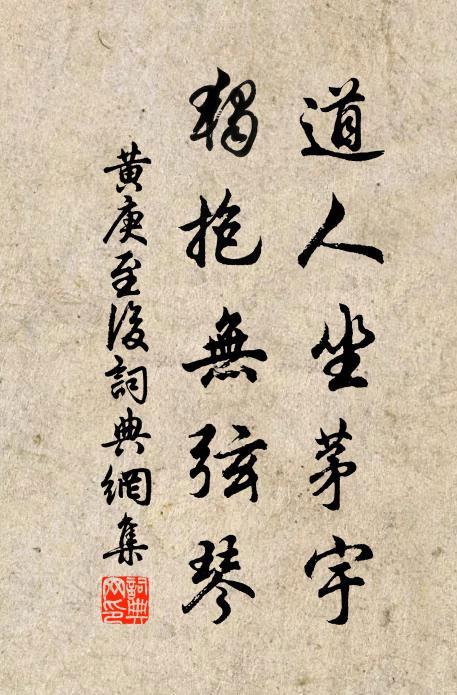 道人坐茅宇
獨抱無弦琴
黃庚至後詞典網集
詞典網印